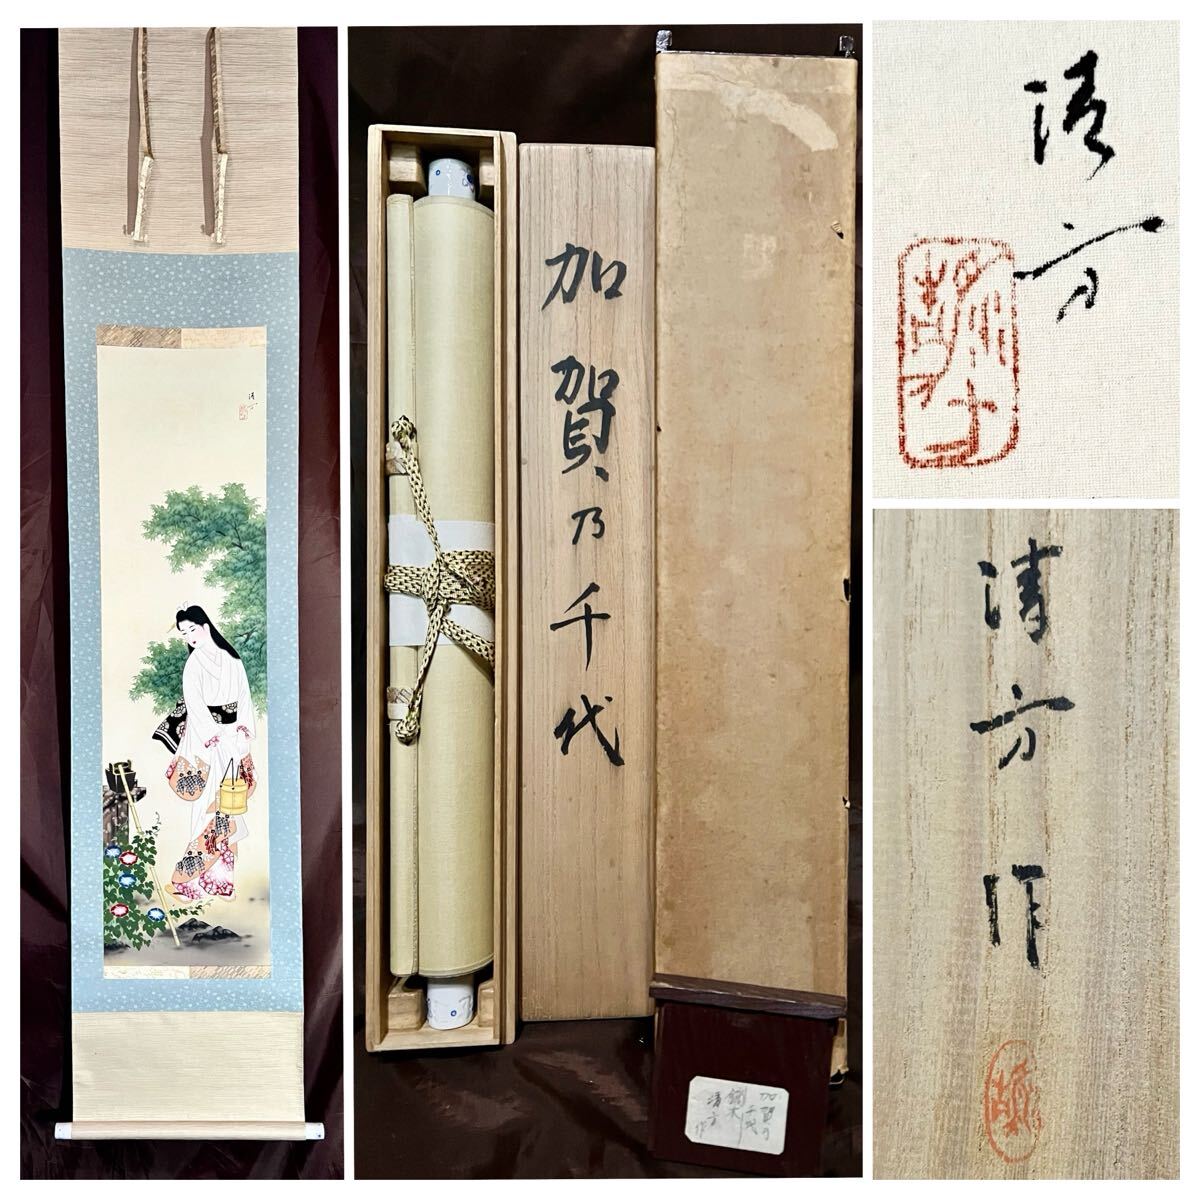 清方
加賀乃千代
清方
清方作
加賀乃
千代
鏑木
清方
作